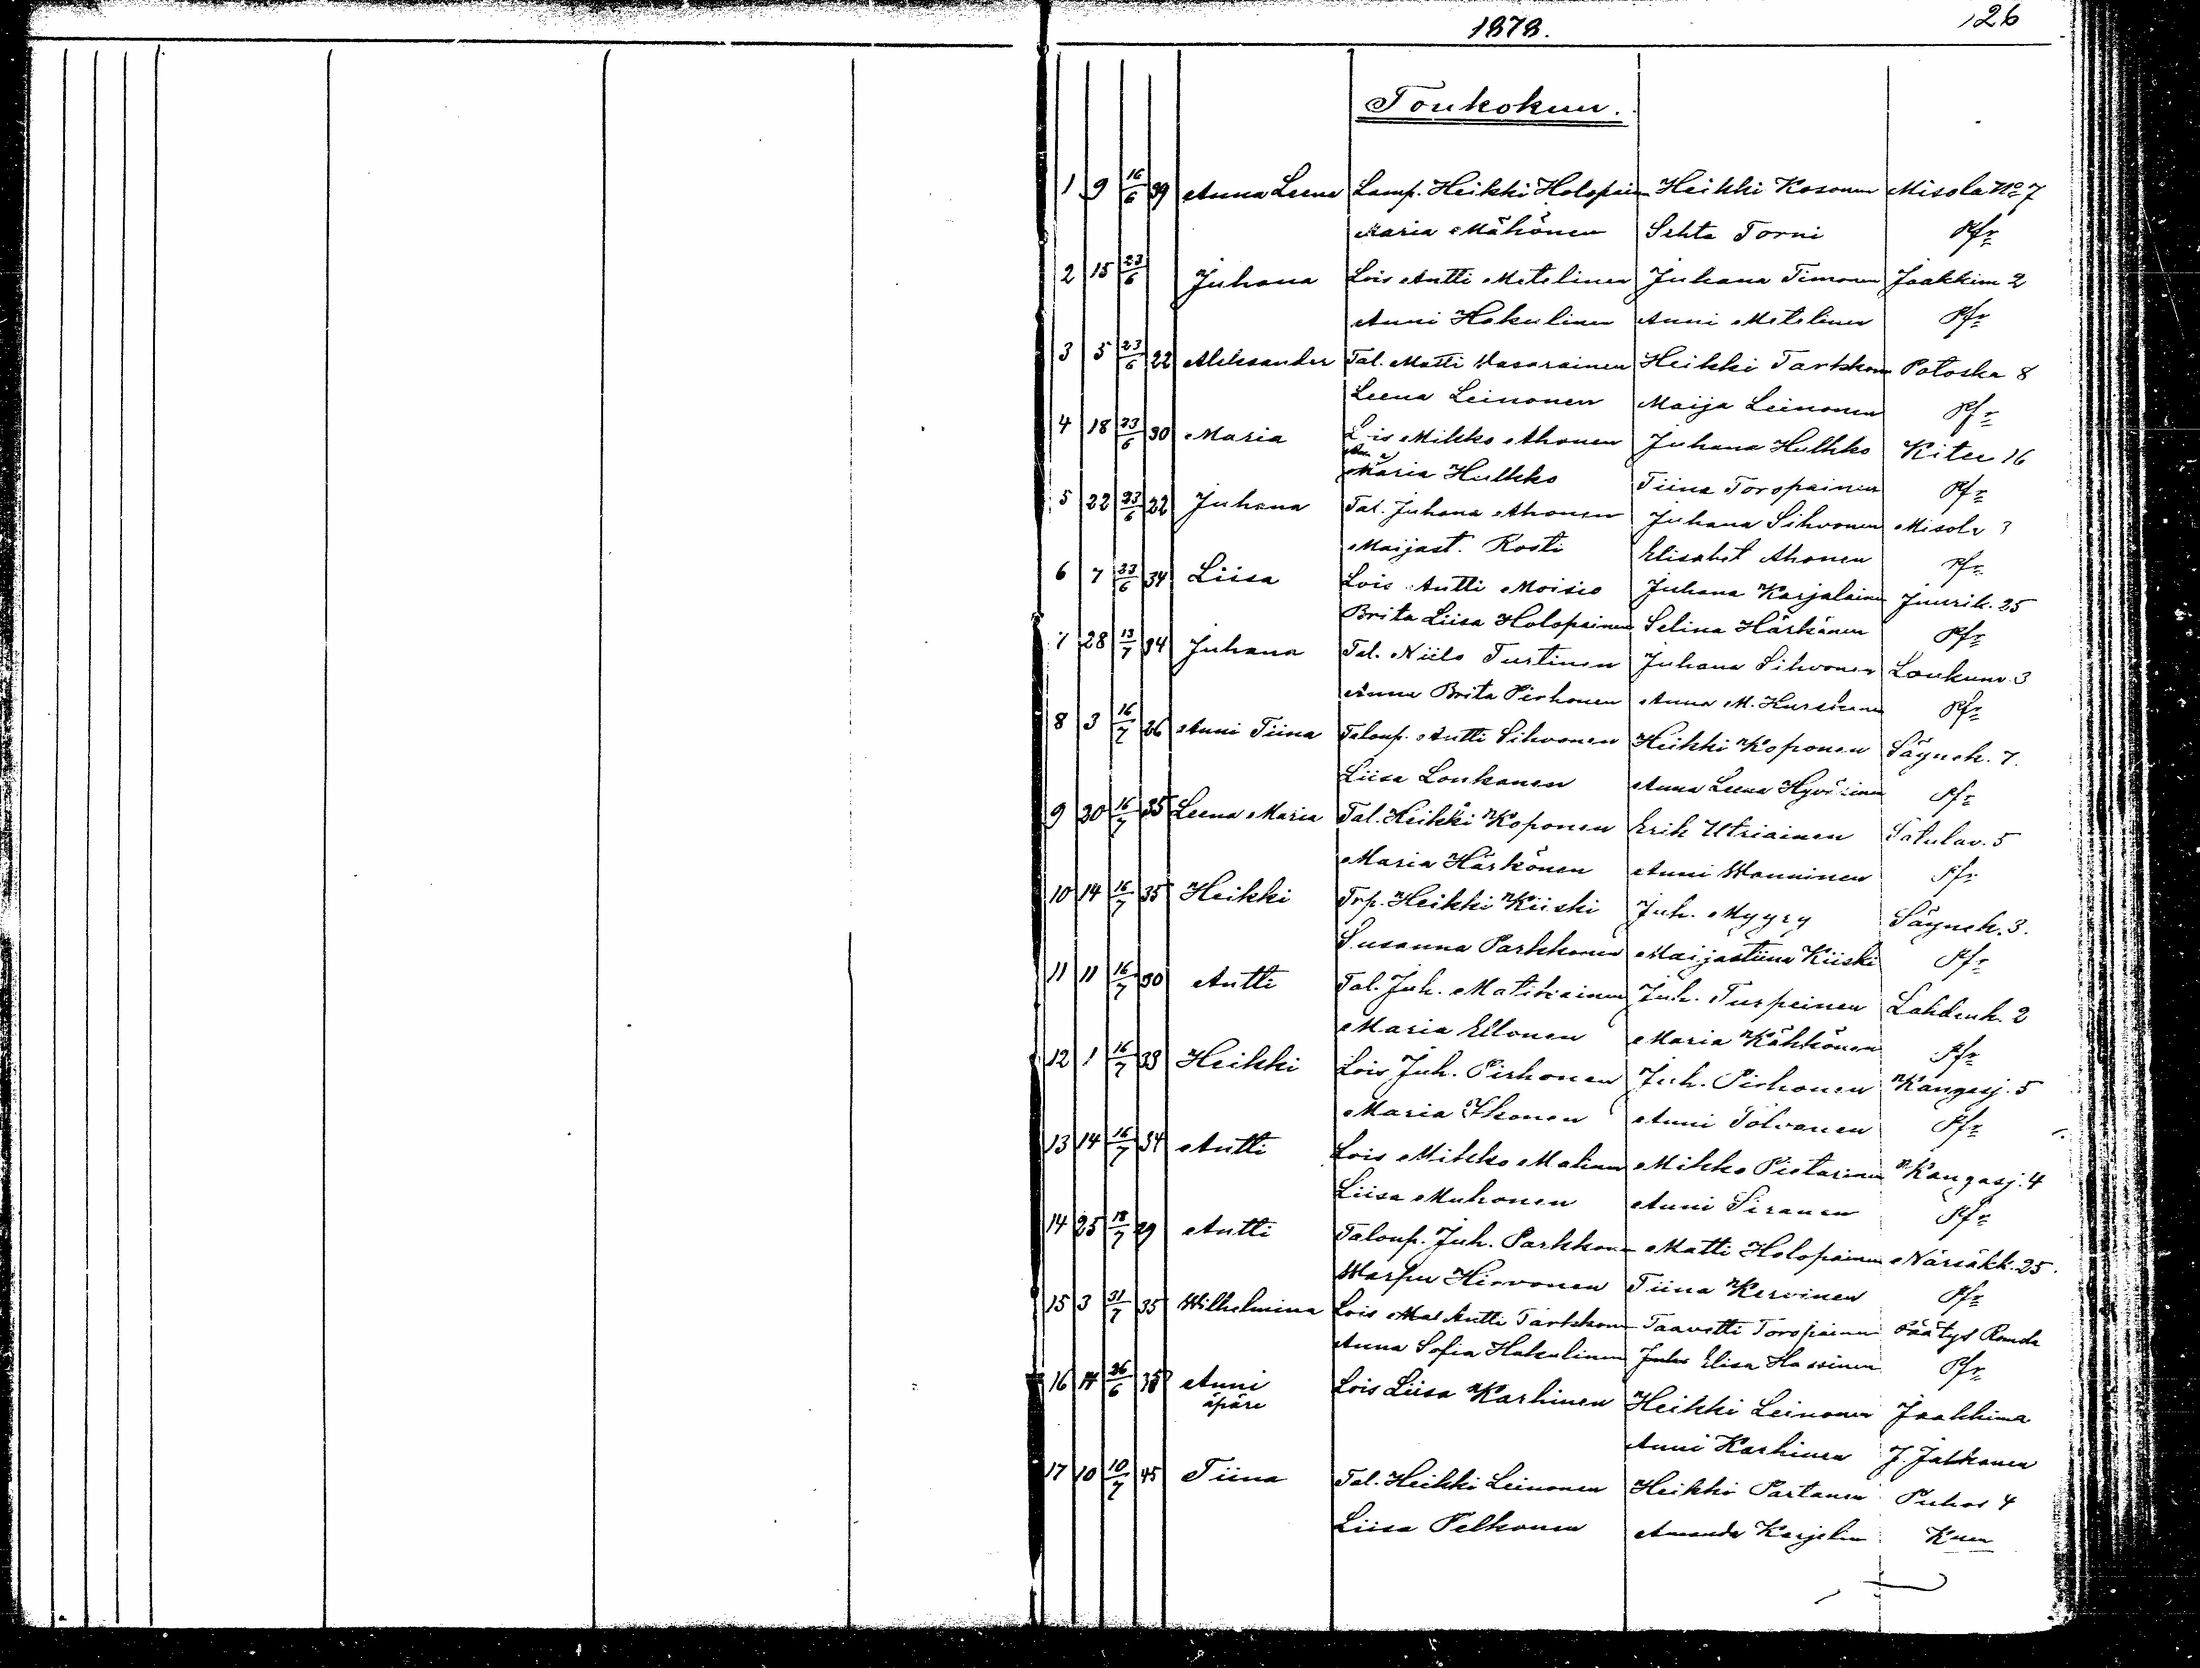 1878.
126
Toukokuu.
1 9 16/6 39 Anna Leena Lamp. Heikki Holopain Heikki Kosonen Misola No 7
Maria Mähönen Sehta Torni Pfr
2 15 23/6 Juhana Lois Antti Metelinen Juhana Timonen Jaakkim 2
Anni Hakulinen Anni Metelinen Pfr
3 5 23/6 22 Aleksander Tal. Matti Wasarainen Heikki Tarkkonen Potoska 8
Leena Leinonen Maija Leinonen Pfr
4 18 23/6 30 Maria Lois Mikko Ahonen Juhana Hulkko Kitee 16
Maria Hulkko Tiina Toropainen Pfr
5 22 23/6 22 Juhana Tal. Juhana Ahonen Juhana Sihvonen Misola 3
Maijast. Kosti Elisabet Ahonen Pfr
6 7 23/6 34 Liisa Lois Antti Moisio Juhana Karjalainen Juurik. 25
Brita Liisa Holopainen Selina Härkönen Pfr
7 28 13/7 34 Juhana Tal. Niilo Turtinen Juhana Sihvonen Loukunv. 3
Anna Brita Pirhonen Anna M. Pfr
8 3 16/7 26 Anni Tiina Taloup. Antti Sihvonen Heikki Koponen Säynek. 7.
Liisa Loukonen Anna Leena Hyvönen Pfr
9 30 16/7 35 Leena Maria Tal. Heikki Koponen Erik Utriainen Satulav. 5
Maria Härkönen Anni Wänninen Pfr
10 14 16/7 35 Heikki Trp. Heikki Kiiski Juh. Myyry Säynek. 3.
Susanna Parkkonen Maijastiina Kiiski Pfr
11 11 16/7 30 Antti Tal. Juh. Matikainen Juh. Turpeinen Lahdenk. 2
Maria Ellonen Maria Kähkönen Pfr
12 1 16/7 33 Heikki Lois Juh. Pirhonen Juh. Pirhonen Kangasj. 5
Maria Ikonen Anni Tolvanen Pfr
13 14 16/7 34 Antti Lois Mikko Makinen Mikko Pietarinen Kangasj. 4
Liisa Muhonen Anni Siranen Pfr
14 25 18/7 29 Antti Taloup. Juh. Parkkonen Matti Holopainen Närsäkk. 25.
Warpu Hirvonen Tiina Kervinen Pfr
15 3 31/7 35 Wilhelmina Lois Antti Tarkkonen Taavetti Toropainen Säätys
Anna Sofia Hakulinen Elisa Hassinen Pfr
16 17 26/6 Anni Lois Liisa Karhinen Heikki Leinonen Jaakkima
äpäre Anni Karhinen J. Jalkanen
17 10 10/7 45 Tiina Tal. Heikki Leinonen Heikki Partanen Puhos 4
Liisa Pelkonen Amanda Karjelin